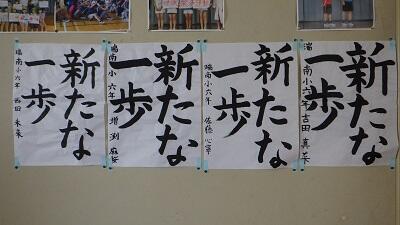 新たな
一歩
南小六年 吉田
新たな
一歩
南小六年 佐藤 心
新たな
一歩
南小 六年 増渕 麻
新たな
一歩
南小六年 西田 未来